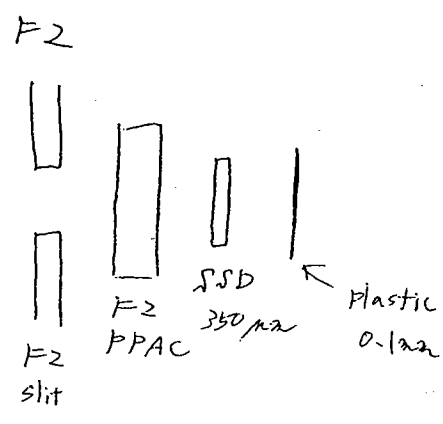 F2
F2
slit
F2
PPAC
SSD
350 μm
plastic
0.1mm